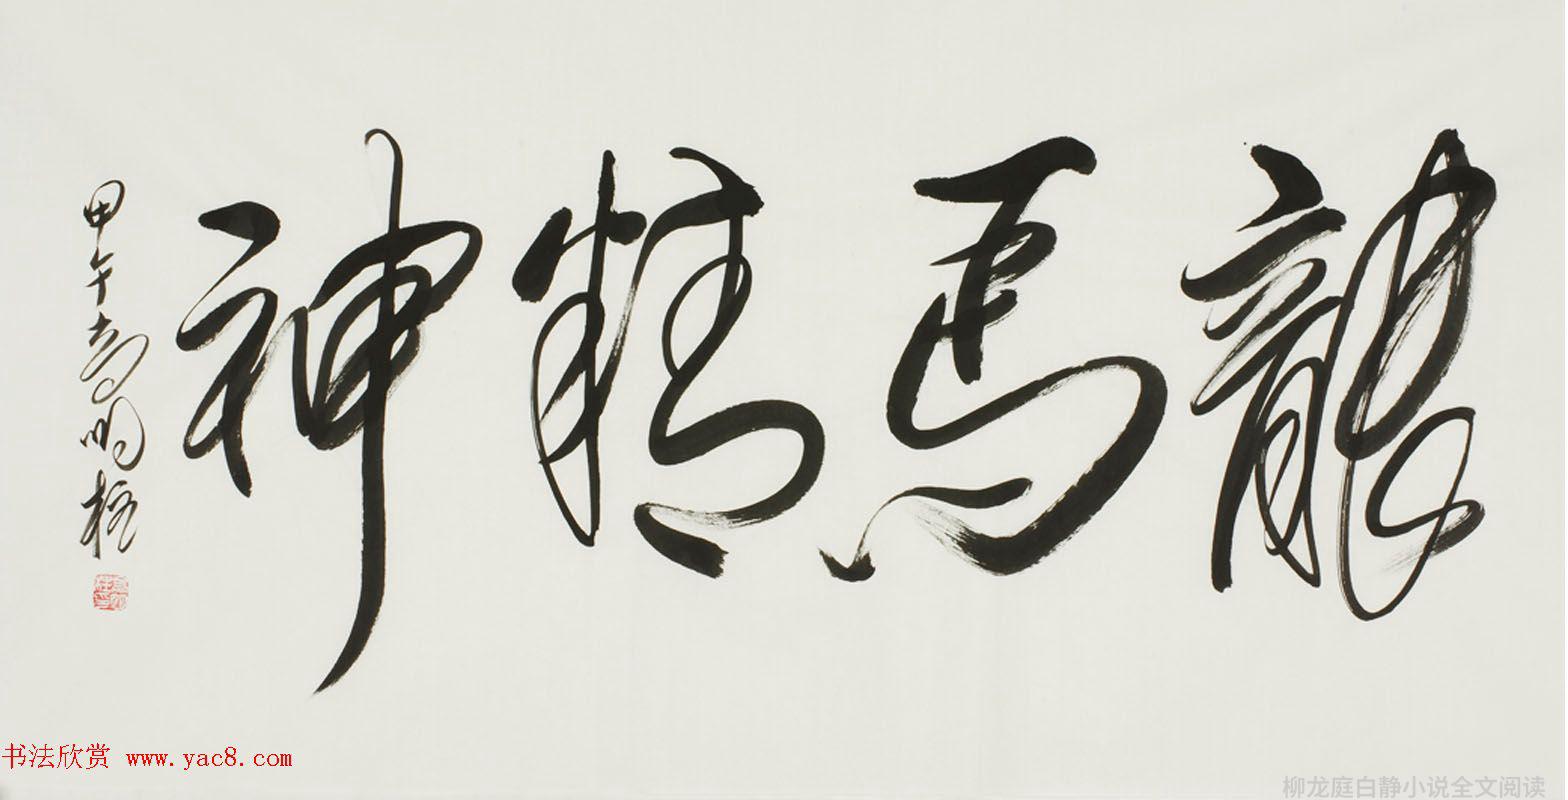 龍馬精神
甲午高明柱
书法欣赏 www.yac8.com
柳龙庭白静小说全文阅读